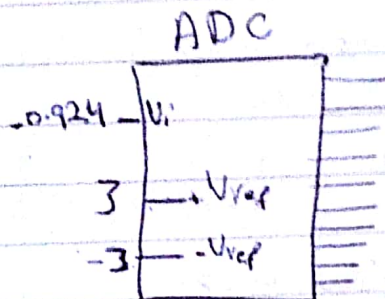 ADC
-0.924 Vi
3 + Vref
-3 - Vref